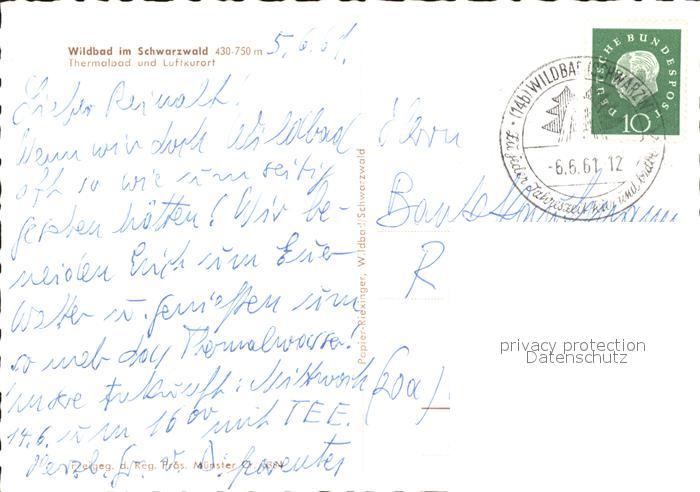 Wildbad im Schwarzwald 430-750 m
Thermalbad und Luftkurort
5.6.61.
Lieber Reinolt!
Wenn wir doch Wildbad
oft so wie um seitig
gesehen hätten! Wir be-
neiden Euch um Euer
Wetter u. genießen um
so mehr das Thermalwasser!
unsere Ankunft: Mittwoch
14.6. um 16 00 mit TEE.
Herzl. Gr.
Papier-Riexinger, Wildbad Schwarzwald
Freigeg. d. Reg. Präs. Münster
Herrn
R
(20a)
DEUTSCHE BUNDESPOST
10
(14b) WILDBAD (SCHWARZW
-6.6.61.12
Zu jeder Jahreszeit
privacy protection
Datenschutz